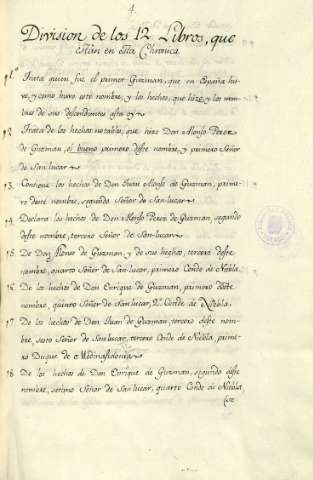 4
Division de los 12 Libros, que
están en esta Chronica.
1.º Trata quien fué el primer Guzman, que en España hu-
vo, y como huvo este nombre, y los hechos, que hizo, y los nom-
bres de sus descendientes asta oy
2 Trata de los hechos notables, que hizo Don Alonso Perez
de Guzman, el bueno primero deste nombre, y primero Señor
de San-lucar
3 Contiene los hechos de Don Juan Alonso de Guzman, prime-
ro deste nombre, segundo Señor de San-lucar
4 Declara los hechos de Don Alonso Perez de Guzman, segundo
deste nombre, tercero Señor de San-lucar
5 De Don Alonso de Guzman, y de sus hechos, tercero deste
nombre, quarto Señor de San-lucar, primero Conde de Niebla.
6 De los hechos de Don Enrique de Guzman, primero deste
nombre, quinto Señor de San-lucar, 2.º Conde de Niebla.
7 De los hechos de Don Juan de Guzman, tercero deste nom-
bre, sesto Señor de San-lucar, tercero Conde de Niebla, prime-
ro Duque de Medinasidonia
8 De los hechos de Don Enrique de Guzman, segundo deste
nombre, setimo Señor de San-lucar, quarto Conde de Niebla